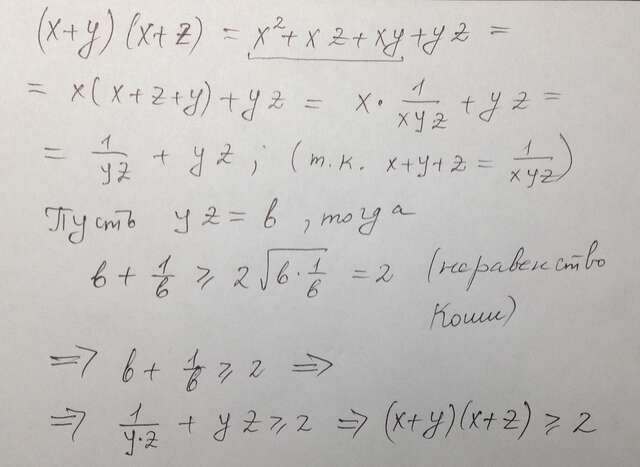 (x+y)(x+z) = x²+xz+xy+yz =
= x(x+z+y)+yz = x·1/xyz + yz =
= 1/yz + yz; (т.к. x+y+z = 1/xyz)
Пусть yz = b, тогда
b + 1/b ≥ 2√(b·1/b) = 2 (неравенство
Коши)
=> b + 1/b ≥ 2 =>
=> 1/y·z + yz ≥ 2 => (x+y)(x+z) ≥ 2